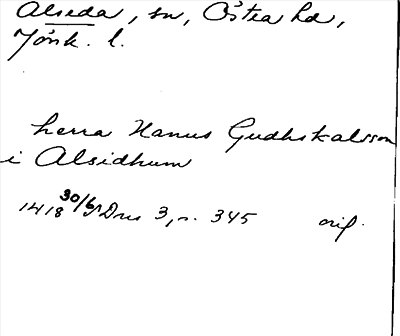 Alseda, sn, Östra hd,
Jönk. l.
herra Hanus Gudhskalsson
i Alsidhum
1418 30/6 Dns 3, s. 345 orig.